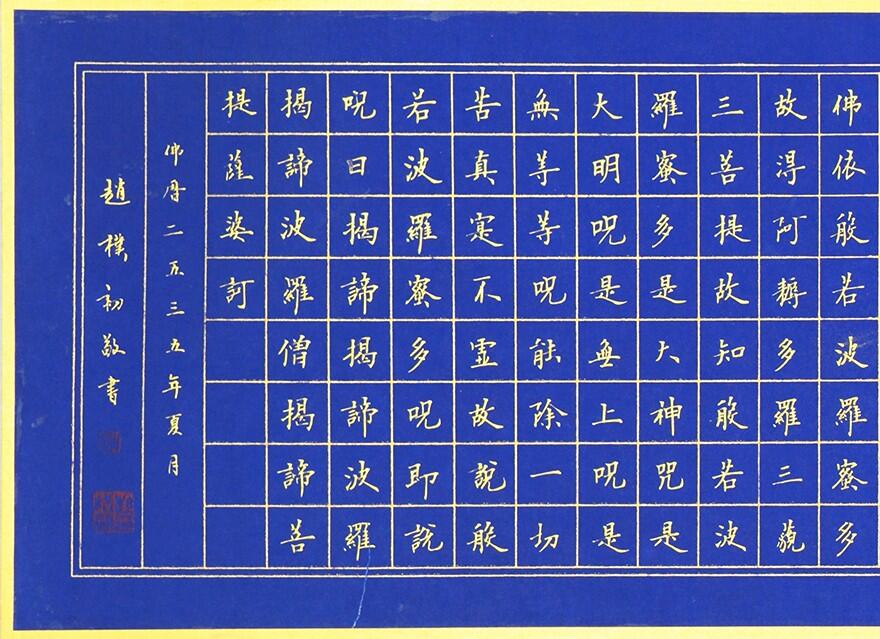 佛依般若波羅蜜多
故得阿耨多羅三藐
三菩提故知般若波
羅蜜多是大神咒是
大明呪是無上呪是
無等等呪能除一切
苦真寔不虛故說般
若波羅蜜多呪即說
呪曰揭諦揭諦波羅
揭諦波羅僧揭諦菩
提薩婆訶
佛曆二五三五年夏月
趙樸初敬書